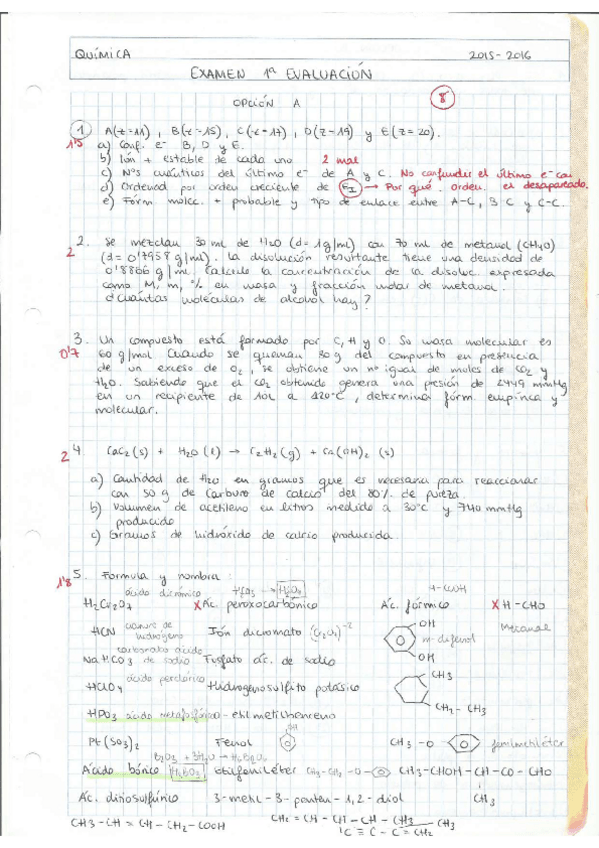 QUÍMICA 2015-2016
EXAMEN 1ª EVALUACIÓN
OPCIÓN A 8
1 A(z=11), B(z=15), C(z=17), D(z=19) y E(z=20).
1'5 a) Conf. e- B, D y E.
b) Ión + estable de cada uno 2 mal
c) Nºs cuánticos del último e- de A y C. No confundir el último e- con
d) Ordenad por orden creciente de EI → Por qué orden. el desapareado.
e) Fórm molec. + probable y tipo de enlace entre A-C, B-C y C-C.
2 2. Se mezclan 30 ml de H2O (d=1g/ml) con 70 ml de metanol (CH4O)
(d=0'7958 g/ml). La disolución resultante tiene una densidad de
0'8866 g/ml. Calcula la concentración de la disoluc. expresada
como M, m, % en masa y fracción molar de metanol.
¿Cuántas moléculas de alcohol hay?
3. Un compuesto está formado por C, H y O. Su masa molecular es
0'7 60 g/mol. Cuando se queman 30 g del compuesto en presencia
de un exceso de O2, se obtiene un nº igual de moles de CO2 y
H2O. Sabiendo que el CO2 obtenido genera una presión de 2449 mmHg
en un recipiente de 10L a 120ºC, determina fórm. empírica y
molecular.
2 4 CaC2(s) + H2O(l) → C2H2(g) + Ca(OH)2 (s)
a) Cantidad de H2O en gramos que es necesaria para reaccionar
con 50 g de Carburo de calcio del 80% de pureza.
b) Volumen de acetileno en litros medido a 30ºC y 740 mmHg
producido
c) Gramos de hidróxido de calcio producida.
1'8 5. Formula y nombra:
ácido dicrómico H-COOH
H2Cr2O7 X Ác. peroxocarbónico Ác. fórmico X H-CHO
HCN Ión dicromato (Cr2O7)-2 OH m-difenol OH Metanal
hidrógeno
carbonato ácido
NaHCO3 de sodio Fosfato ác. de sodio
ácido perclórico
HClO4 Hidrogenosulfito potásico CH3 CH2-CH3
HPO3 ácido metafosfórico - etilmetilbenceno
OH
Pt(SO3)2 Fenol CH3-O fenilmetiléter
B2O3 + 3H2O → H6B2O6
Ácido bórico H3BO3 etilfeniléter CH3-CH2-O CH3-CHOH-CH-CO-CHO
CH3
Ác. disulfúrico 3-metil-3-penten-1,2-diol
CH3-CH=CH-CH2-COOH